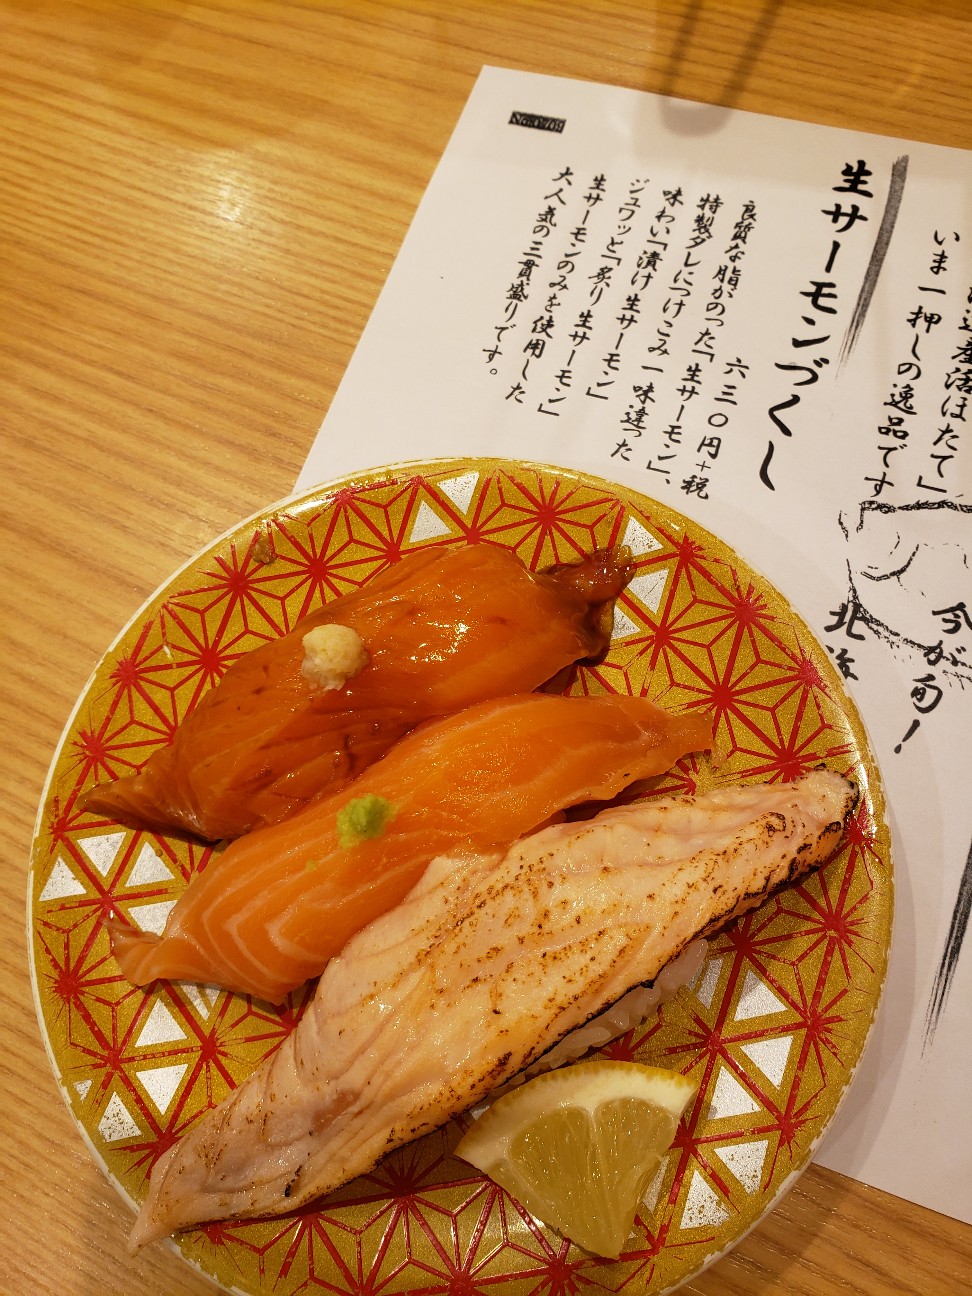 いま一押しの逸品です
今が旬！
生サーモンづくし
六三〇円+税
良質な脂がのった「生サーモン」、
特製ダレにつけこみ一味違った
味わい「漬け生サーモン」
ジュワッと「炙り生サーモン」
生サーモンのみを使用した
大人気の三貫盛りです。